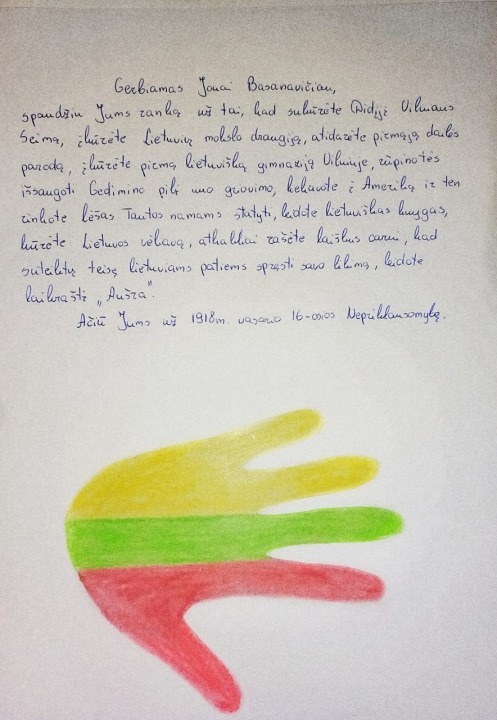 Gerbiamas Jonai Basanavičiau,
spaudžiu Jums ranką už tai, kad sukūrėte Didįjį Vilniaus
Seimą, įkūrėte Lietuvių mokslo draugiją, atidarėte pirmąją dailės
parodą, įkūrėte pirmą lietuvišką gimnaziją Vilniuje, rūpinotės
išsaugoti Gedimino pilį nuo griovimo, keliavote į Ameriką ir ten
rinkote lėšas Tautos namams statyti, leidote lietuviškas knygas,
kūrėte Lietuvos vėliavą, atkakliai rašėte laiškus carui, kad
suteiktų teisę lietuviams patiems spręsti savo likimą, leidote
laikraštį „Aušra".
Ačiū Jums už 1918m. vasario 16-osios Nepriklausomybę.